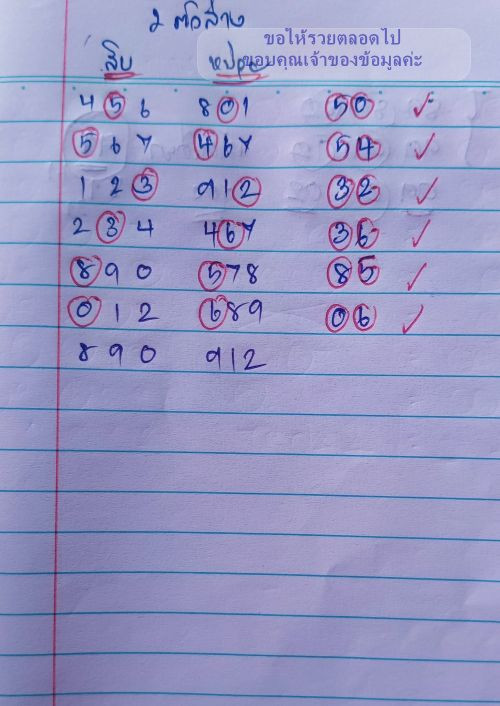 2 ตัวล่าง
ขอให้รวยตลอดไป
ขอบคุณเจ้าของข้อมูลค่ะ
สิบ หน่วย
4 5 6 8 0 1 5 0 ✓
5 6 7 4 6 7 5 4 ✓
1 2 3 9 1 2 3 2 ✓
2 3 4 4 6 7 3 6 ✓
8 9 0 5 7 8 8 5 ✓
0 1 2 6 8 9 0 6 ✓
8 9 0 9 1 2